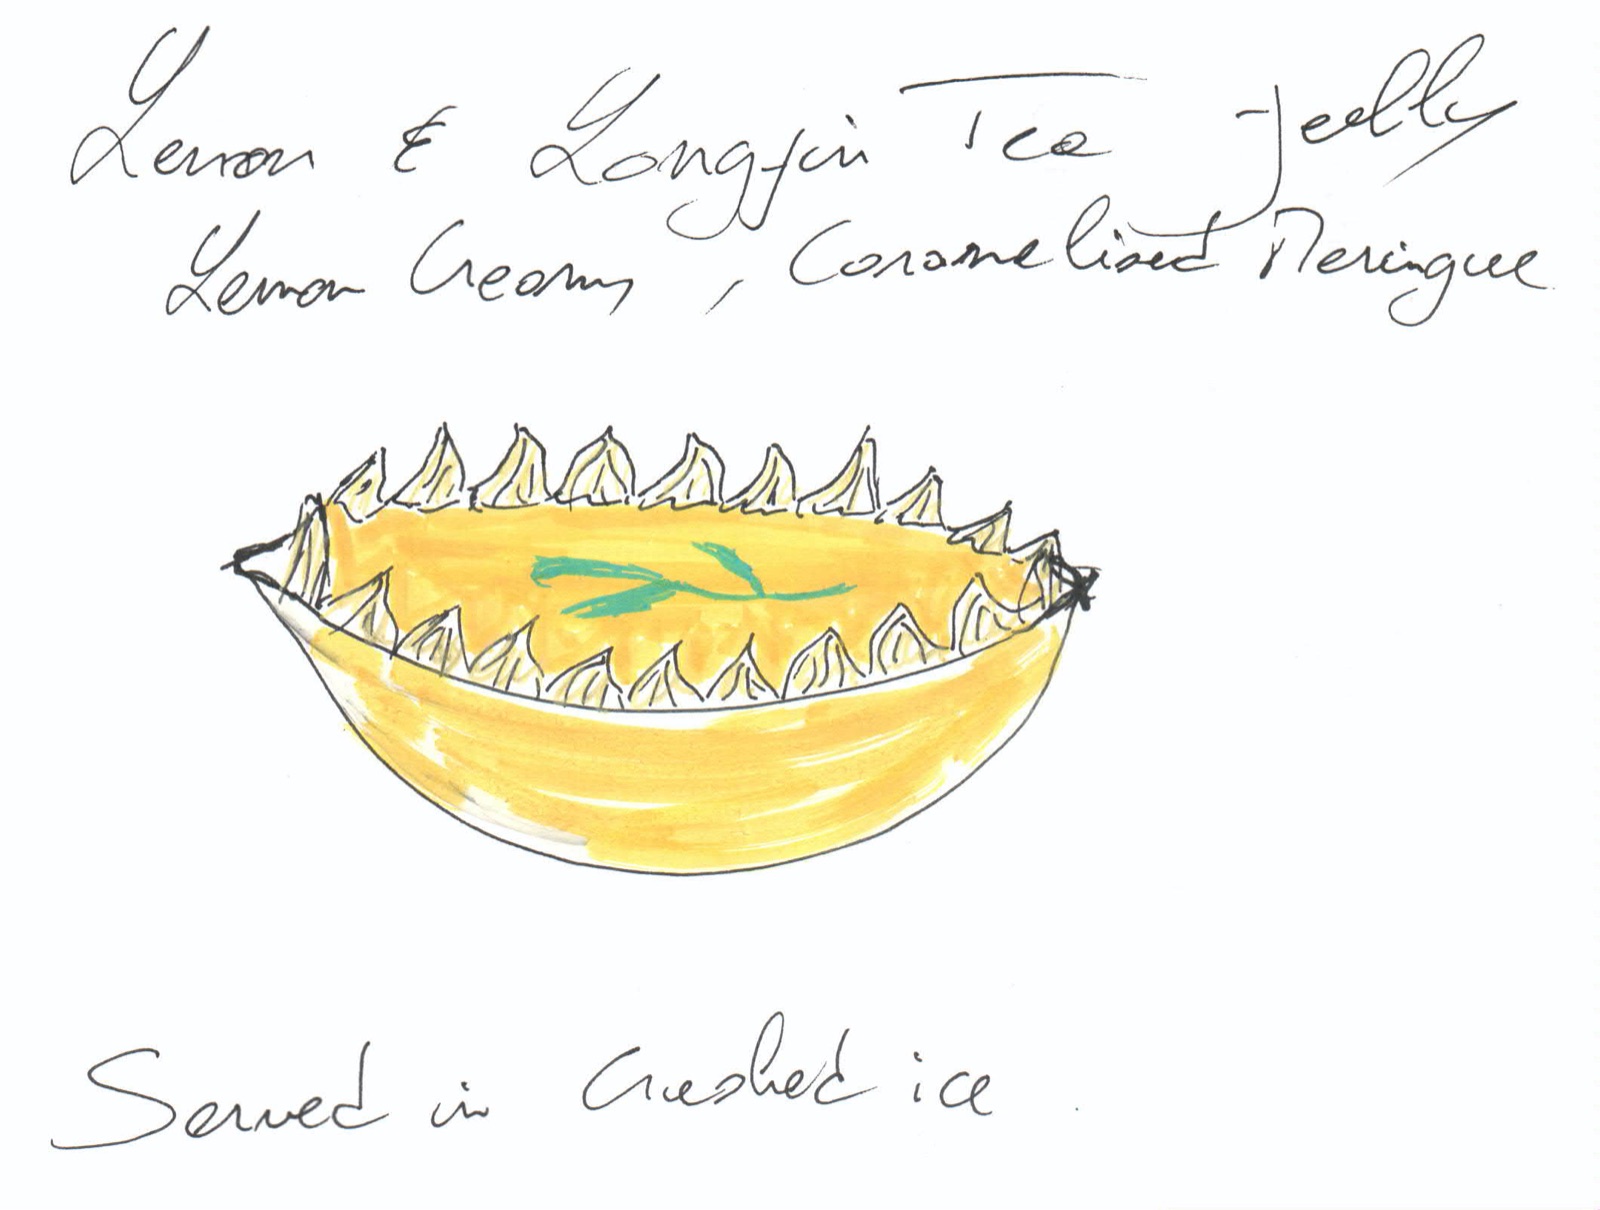 Lemon & Longjin Tea Jelly
Lemon Creamy, Caramelised Meringue
Served in Crushed ice